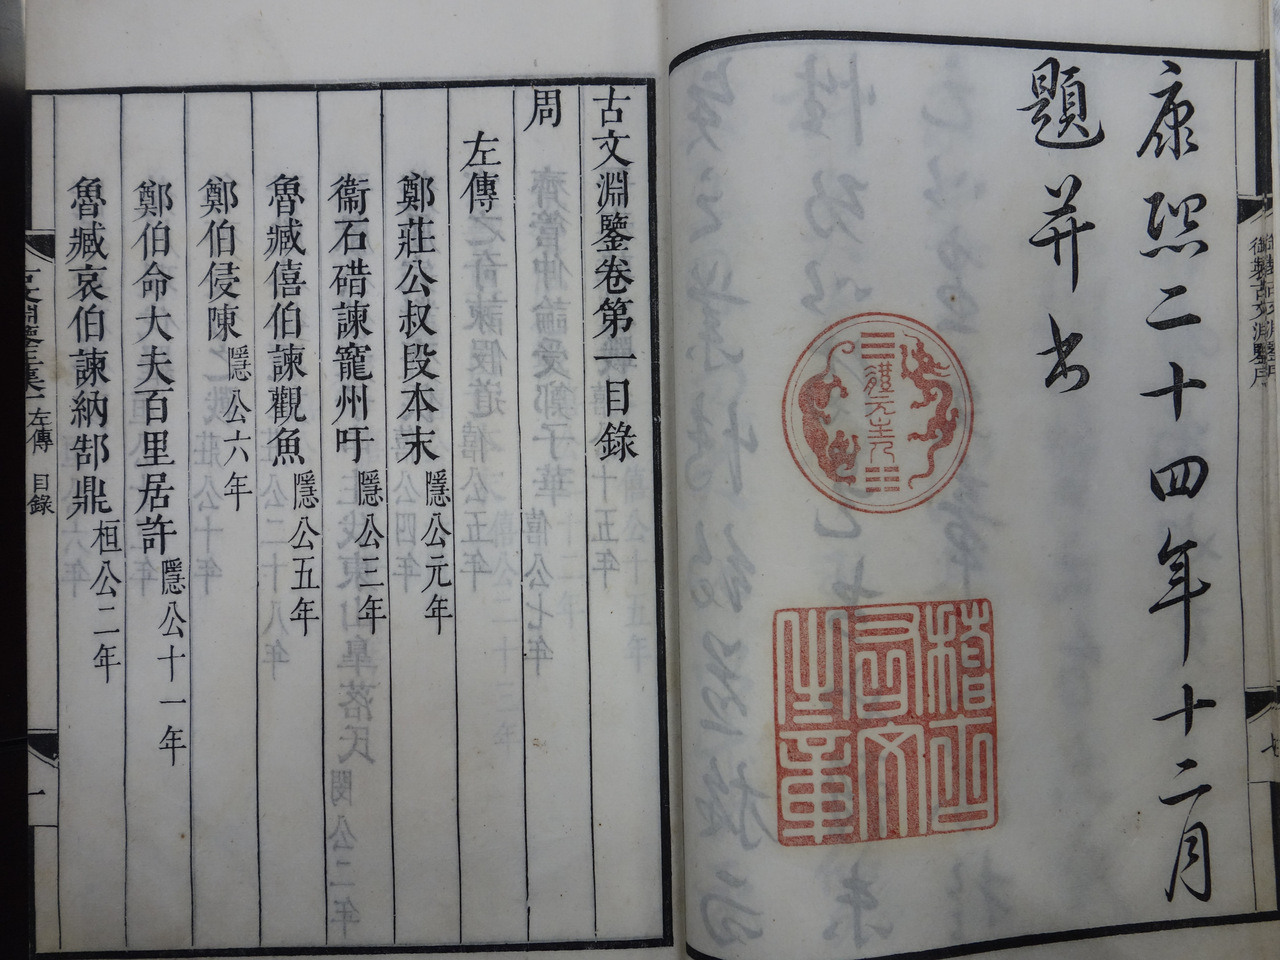 御製古文淵鑒序
康熙二十四年十二月
題并書
體元主人
稽古右文之章
古文淵鑒卷第一目錄
周
左傳
鄭莊公叔段本末 隱公元年
衞石碏諫寵州吁 隱公三年
魯臧僖伯諫觀魚 隱公五年
鄭伯侵陳 隱公六年
鄭伯命大夫百里居許 隱公十一年
魯臧哀伯諫納郜鼎 桓公二年
左傳 目錄 一